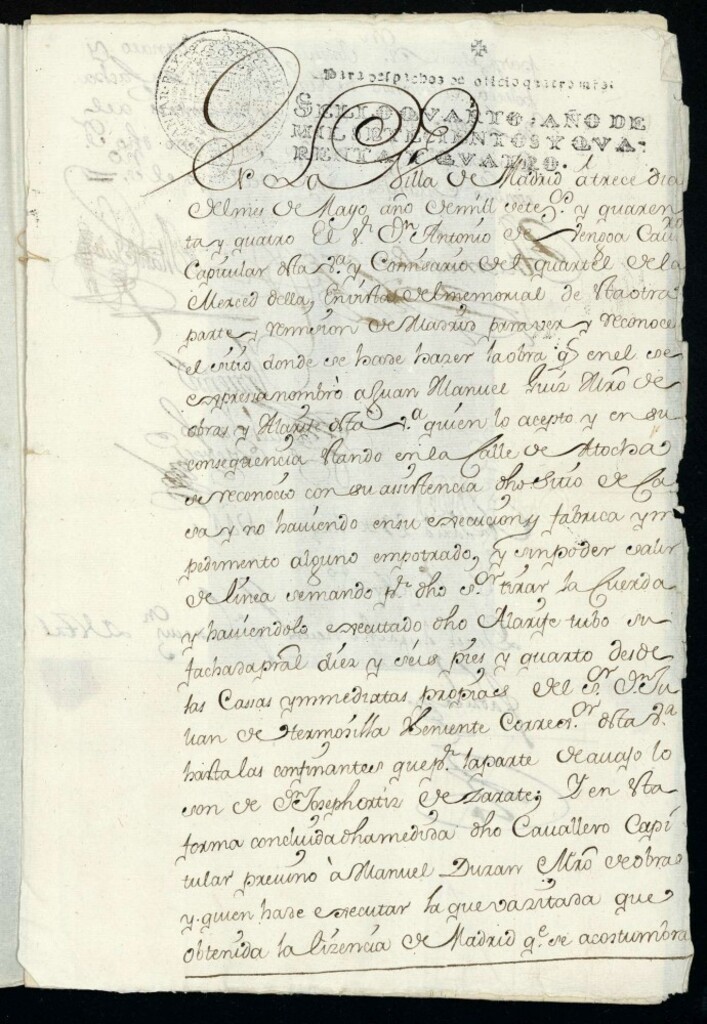 Para despachos de oficio quatro mrs.
SELLO QVARTO, AÑO DE
MIL SETECIENTOS Y QVA-
RENTA Y QVATRO.
En La Villa de Madrid a trece dias
del mes de Mayo año de mill setezs. y quaren
ta y quatro El Sr. Dn. Antonio de Cavro.
Capitular dsta Va. y Comisario del quartel de la
Merced della, En vista del memorial de sta otra
parte, y remision de Madrid para ver y reconocer
el sitio donde se ha de hazer la obra q. en el se
espresa nombrò a Juan Manuel Ruiz Mro. de
obras y Alarife dsta Va. quien lo acepto y en su
consequencia stando en la Calle de Atocha
se reconocio con su asistencia dho Sitio de Ca
sa y no haviendo en su execucion y fabrica ym
pedimento alguno empotrado, y sin poder salir
de linea se mando pr. dho Sr. tirar la Cuerda
y haviendolo executado dho Alarife tubo su
fachada pral diez y seis pies y quarto desde
las Casas ymmediatas propias del Sr. Dn. Ju
lian de Hermosilla theniente Corregr. dsta Va.
hasta las confinantes que pr. la parte de avajo lo
son de Dn. Joseph ortiz de Zarate; Y en sta
forma concluida dha medida dho Cavallero Capi
tular previno à Manuel Duran Mro de obras
y quien ha de executar la que va zitada que
obtenida la lizencia de Madrid qe. se acostumbra